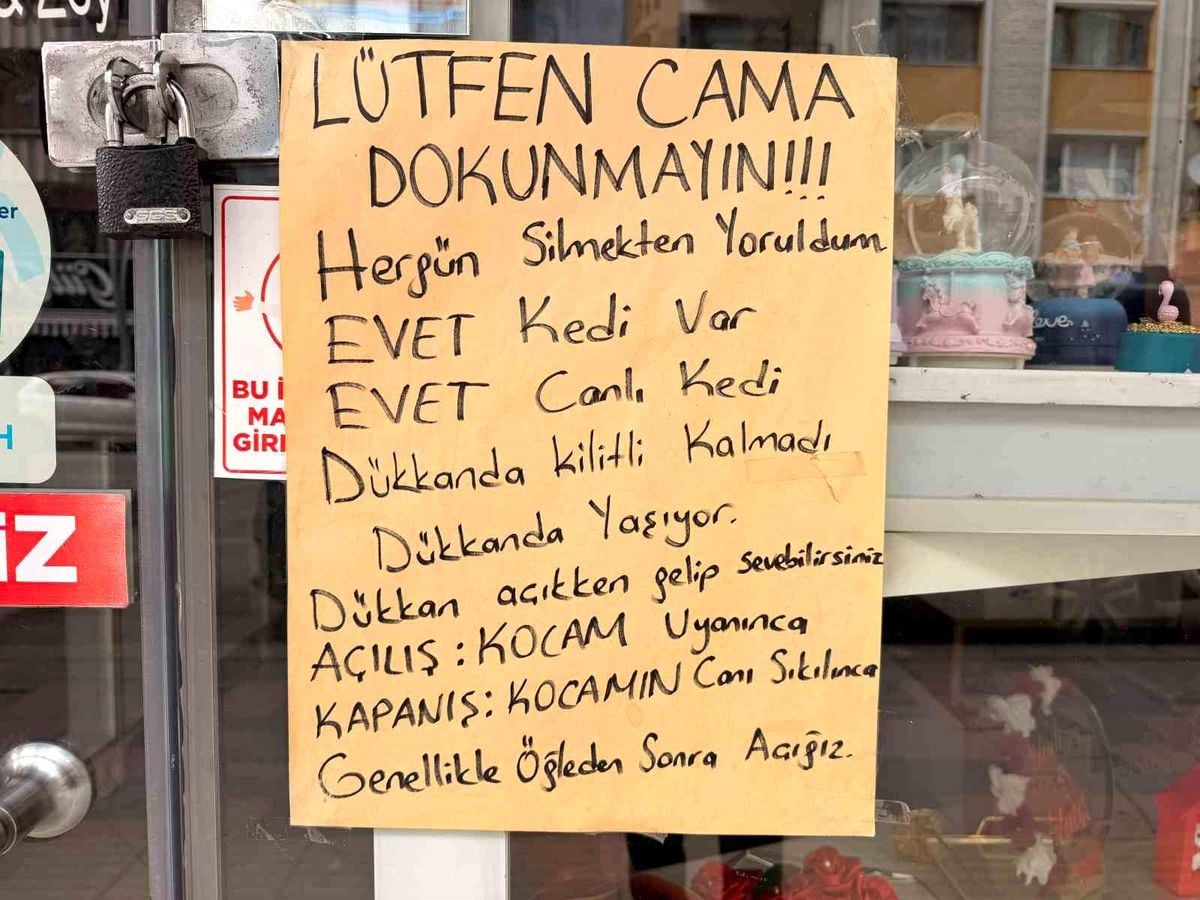 LÜTFEN CAMA
DOKUNMAYIN!!!
Hergün Silmekten Yoruldum
EVET Kedi Var
EVET Canlı Kedi
Dükkanda kilitli Kalmadı
Dükkanda Yaşıyor.
Dükkan açıkken gelip sevebilirsiniz
AÇILIŞ : KOCAM Uyanınca
KAPANIŞ: KOCAMIN Canı Sıkılınca
Genellikle Öğleden Sonra Açığız.
BU İ
MA
GİRİ
İZ
er
H